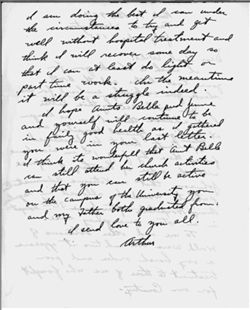 I am doing the best I can under
the circumstances to try and get
well without hospital treatment and
think I will recover some day so
that I can at least do light or
part time work. In the meantime
it will be a struggle indeed.
I hope Aunts Belle and
and yourself will continue to be
in fairly good health as I gathered
you were in your last letter.
I think its wonderful that Aunt Belle
can still attend the church activities
and that you can still be active
on the campus of the University you
and my Father both graduated from.
I send love to you all.
Arthur